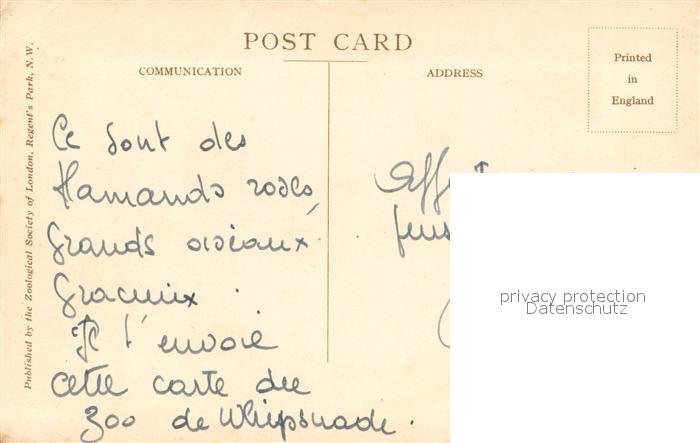 POST CARD
COMMUNICATION
ADDRESS
Printed
in
England
Published by the Zoological Society of London, Regent's Park, N.W.
Ce sont des
flamands roses,
grands oiseaux
gracieux.
Je t'envoie
cette carte du
Zoo de Whipsnade.
privacy protection
Datenschutz